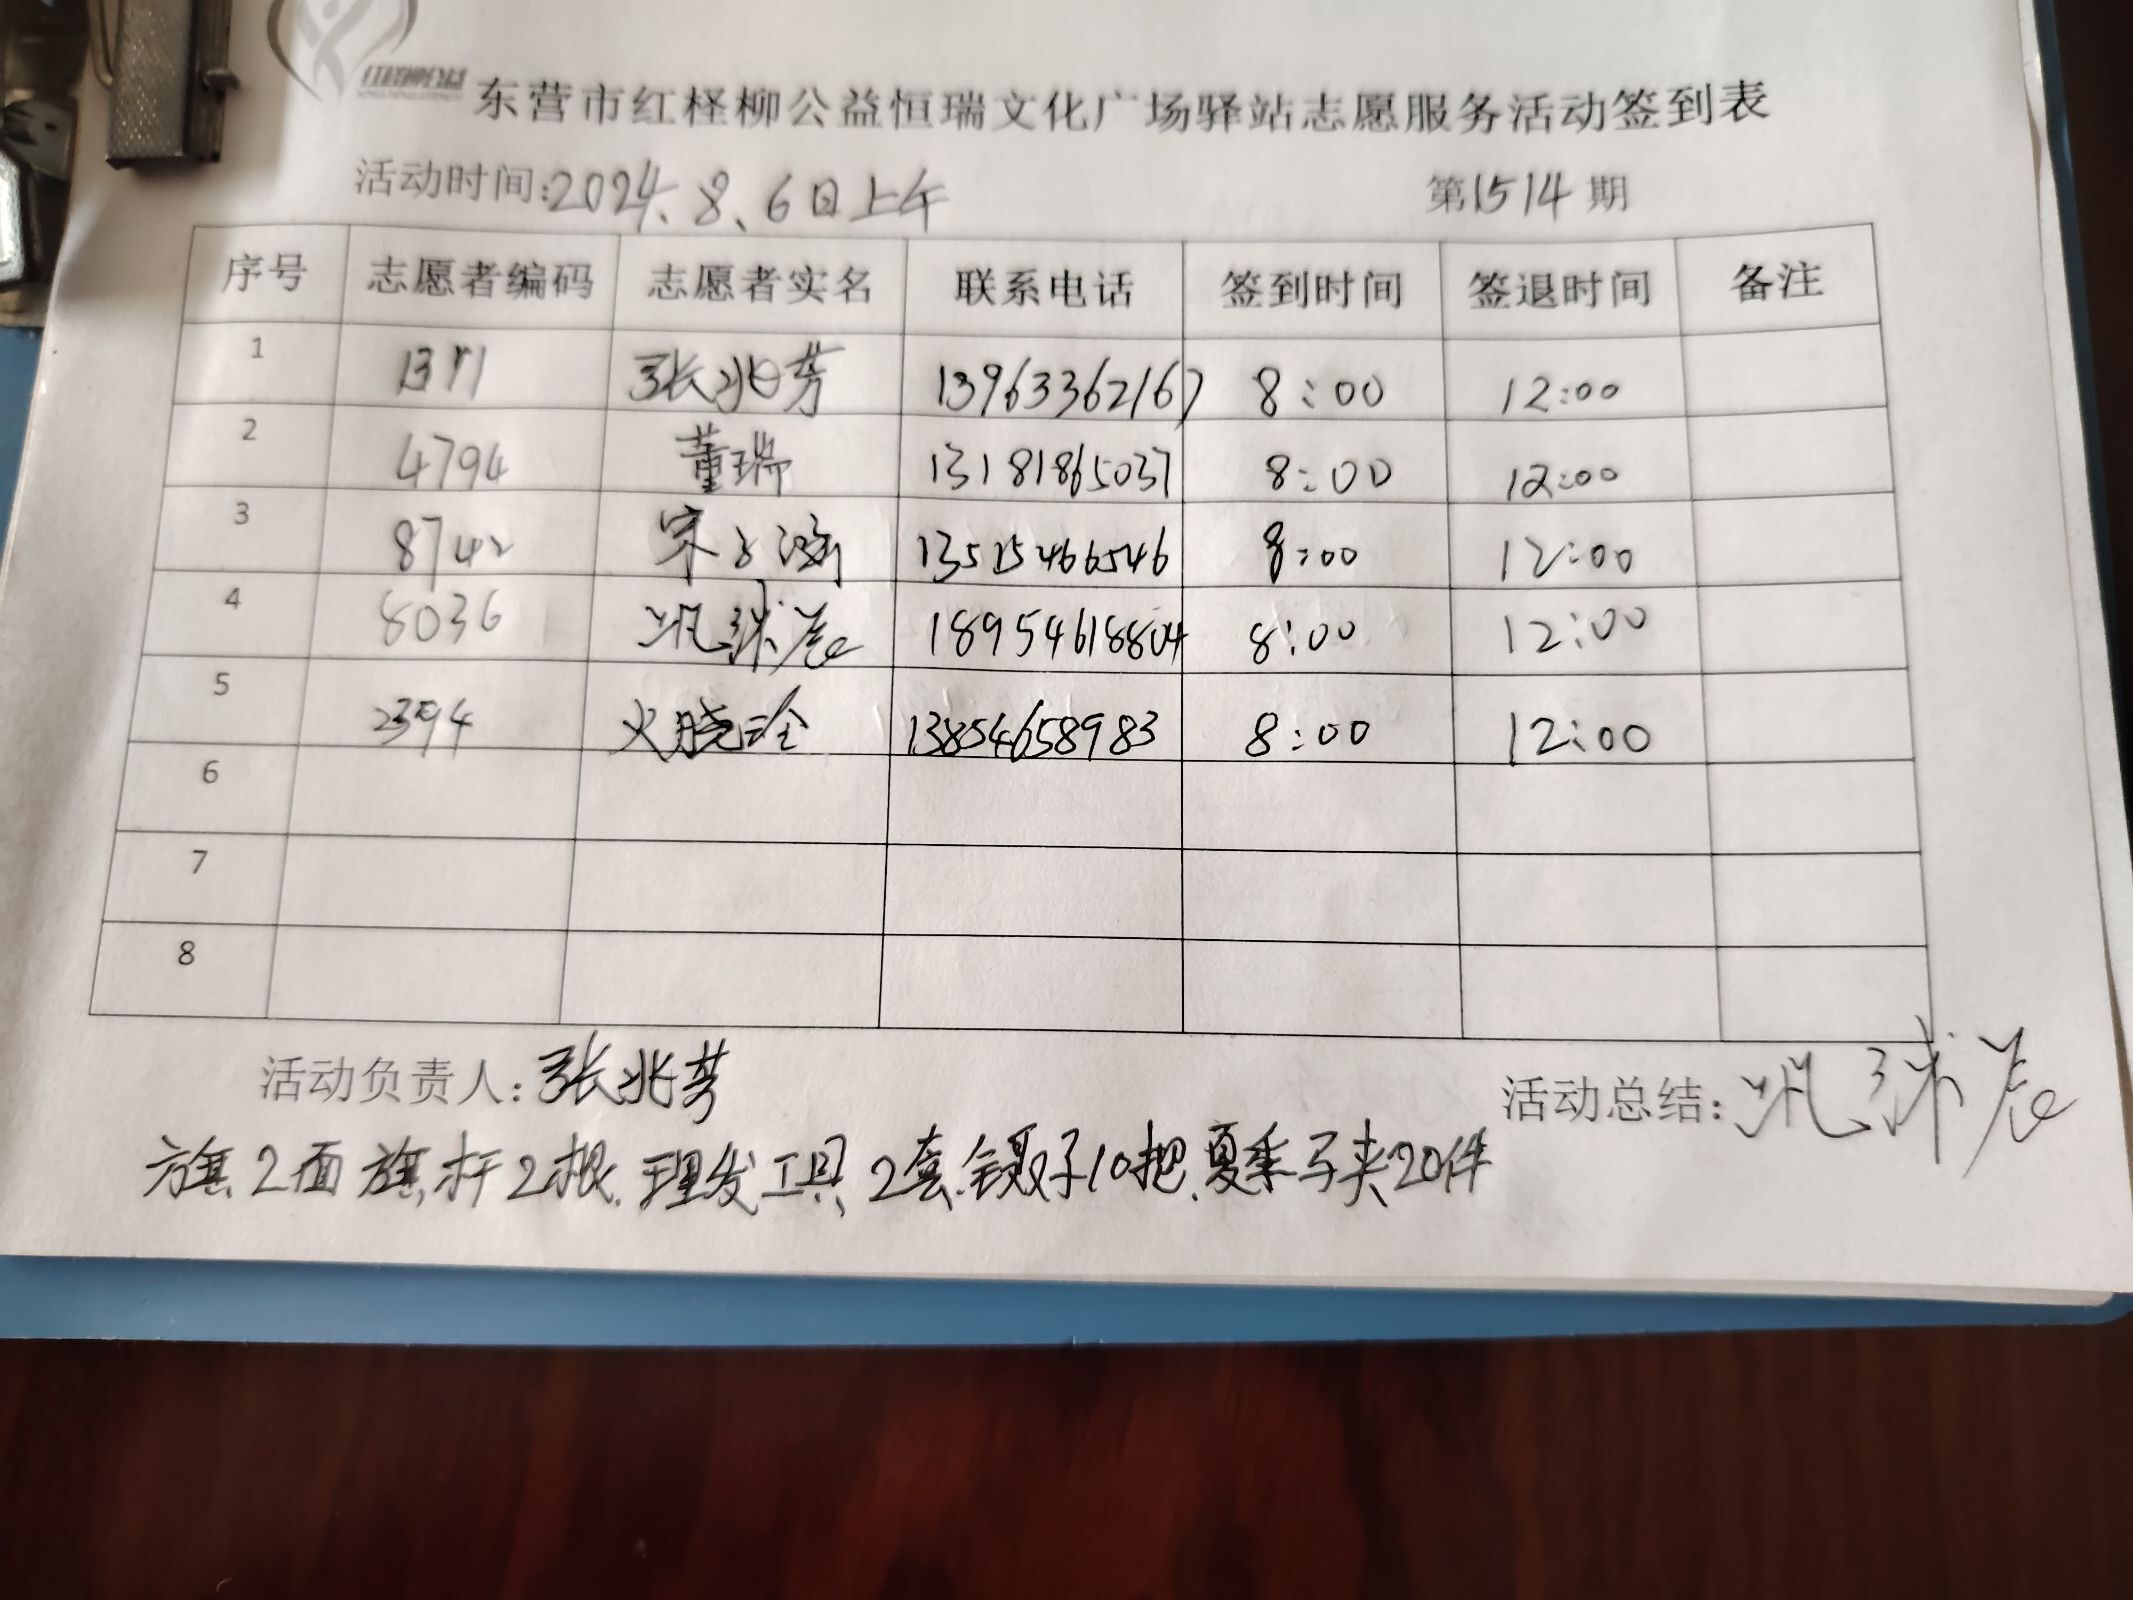 东营市红柽柳公益恒瑞文化广场驿站志愿服务活动签到表
活动时间:2024.8.6日上午 第1514期
序号 志愿者编码 志愿者实名 联系电话 签到时间 签退时间 备注
1 1371 张兆芳 13963362167 8:00 12:00
2 4794 董瑞 13181865037 8:00 12:00
3 8742 宋 13515466546 8:00 12:00
4 8036 18954618804 8:00 12:00
5 2394 13854658983 8:00 12:00
6
7
8
活动负责人:张兆芳 活动总结:
旗2面 旗杆2根.理发工具2套.镊子10把.夏季马夹20件